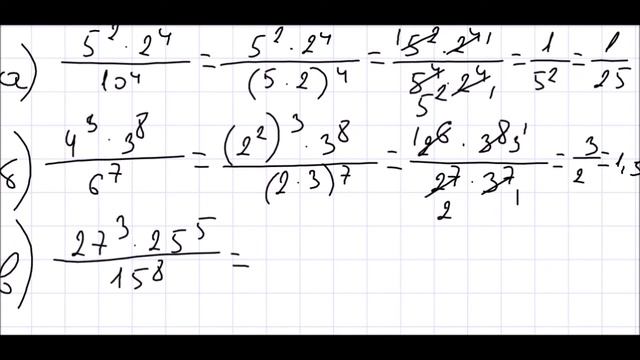 а) 5² · 2⁴ / 10⁴ = 5² · 2⁴ / (5 · 2)⁴ = 5² · 2⁴ / 5⁴ · 2⁴ = 1 / 5² = 1 / 25
б) 4³ · 3⁸ / 6⁷ = (2²)³ · 3⁸ / (2 · 3)⁷ = 2⁶ · 3⁸ / 2⁷ · 3⁷ = 3 / 2 = 1,5
в) 27³ · 25⁵ / 15⁸ =